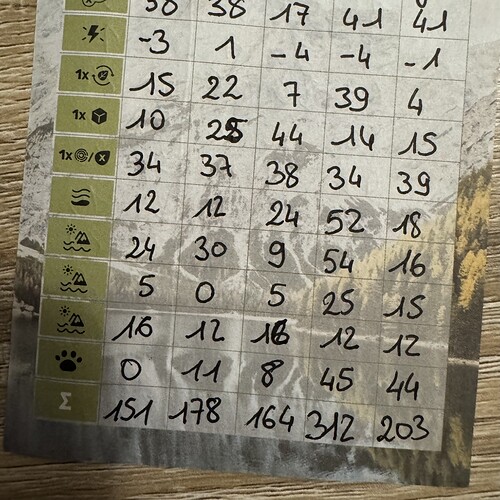 38 38 17 41 41
-3 1 -4 -4 -1
1x 15 22 7 39 4
1x 10 25 44 14 15
1x / x 34 37 38 34 39
12 12 24 52 18
24 30 9 54 16
5 0 5 25 15
16 12 16 12 12
0 11 8 45 44
Σ 151 178 164 312 203